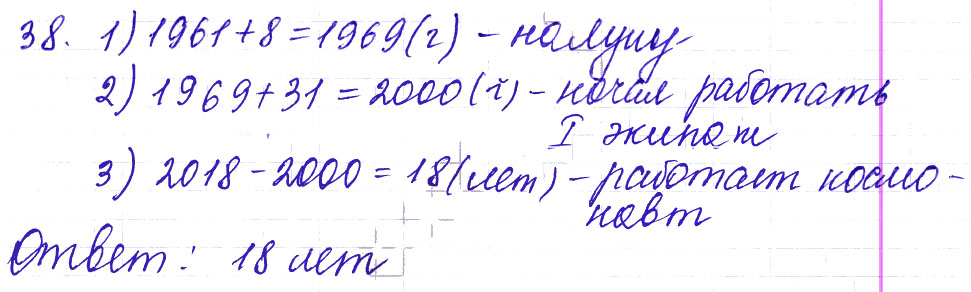 38. 1) 1961 + 8 = 1969 (г) – на луну
2) 1969 + 31 = 2000 (г) – начал работать
I экипаж
3) 2018 – 2000 = 18 (лет) – работает космо-
навт
Ответ: 18 лет